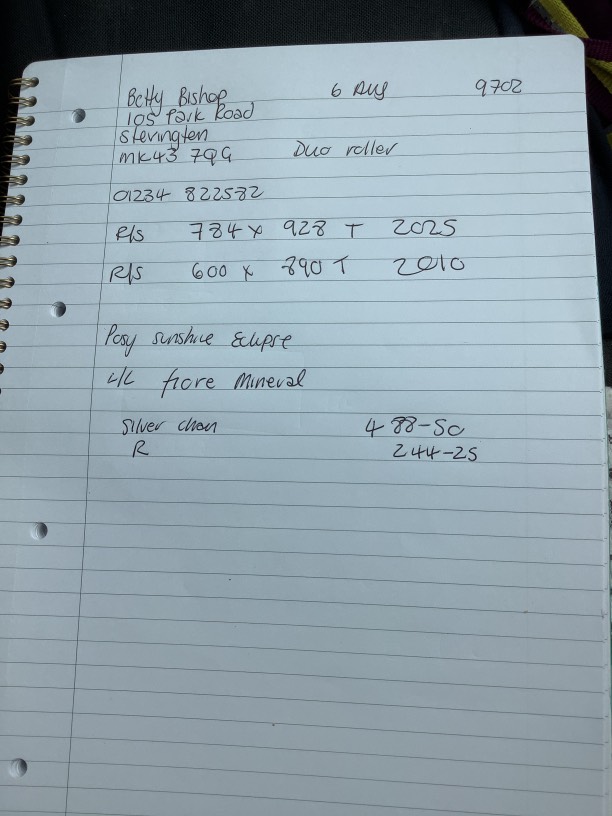 Betty Bishop 6 Aug 9702
105 Park Road
Stevington
MK43 7QG Duo roller
01234 822582
R/S 784 x 928 T 2025
R/S 600 x 890 T 2010
Posy sunshine Eclipse
L/L fiore Mineral
Silver chan 488-50
R 244-25